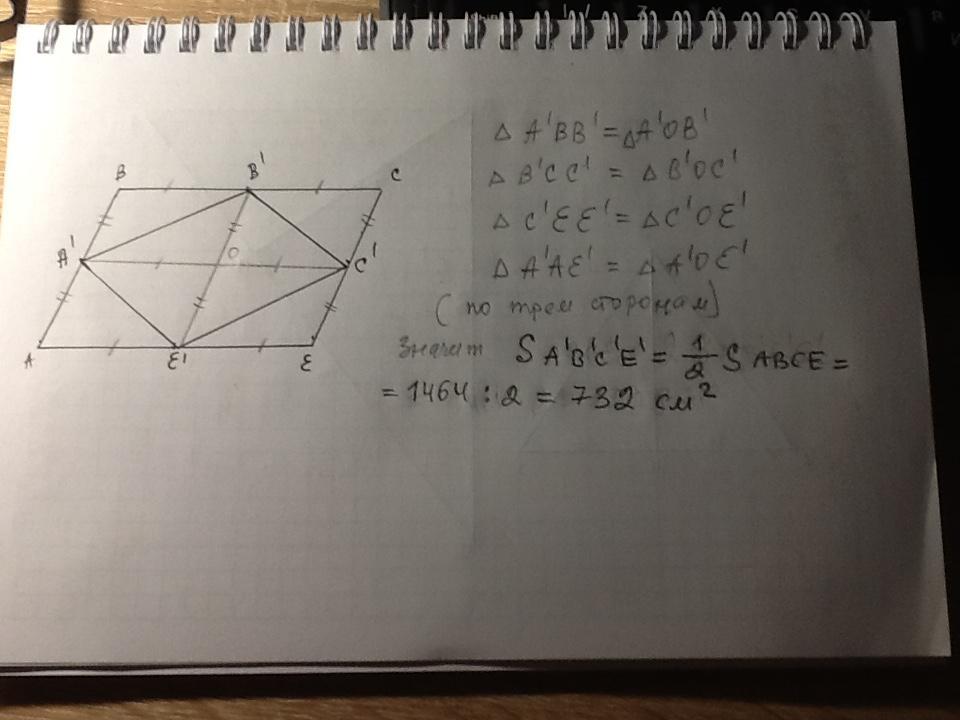 B
B'
C
A'
O
C'
A
E'
E
Δ A'BB' = Δ A'OB'
Δ B'CC' = Δ B'OC'
Δ C'EE' = Δ C'OE'
Δ A'AE' = Δ A'OE'
(по трем сторонам)
Значит S A'B'C'E' = 1/2 S ABCE =
= 1464 : 2 = 732 см²